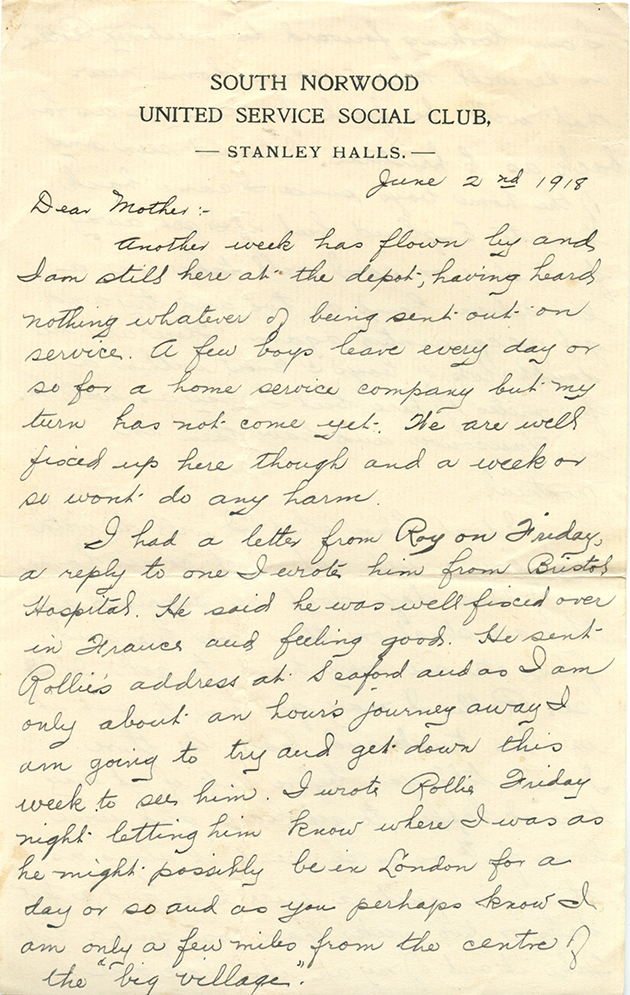 SOUTH NORWOOD
UNITED SERVICE SOCIAL CLUB,
— STANLEY HALLS. —
June 2nd 1918
Dear Mother:-
Another week has flown by and
I am still here at the depot, having heard
nothing whatever of being sent out on
service. A few boys leave every day or
so for a home service company but my
turn has not come yet. We are well
fixed up here though and a week or
so wont do any harm.
I had a letter from Roy on Friday,
a reply to one I wrote him from Bristol
Hospital. He said he was well fixed over
in France and feeling good. He sent
Rollie's address at Seaford and as I am
only about an hour's journey away I
am going to try and get down this
week to see him. I wrote Rollie Friday
night letting him know where I was as
he might possibly be in London for a
day or so and as you perhaps know I
am only a few miles from the centre of
the "big village".